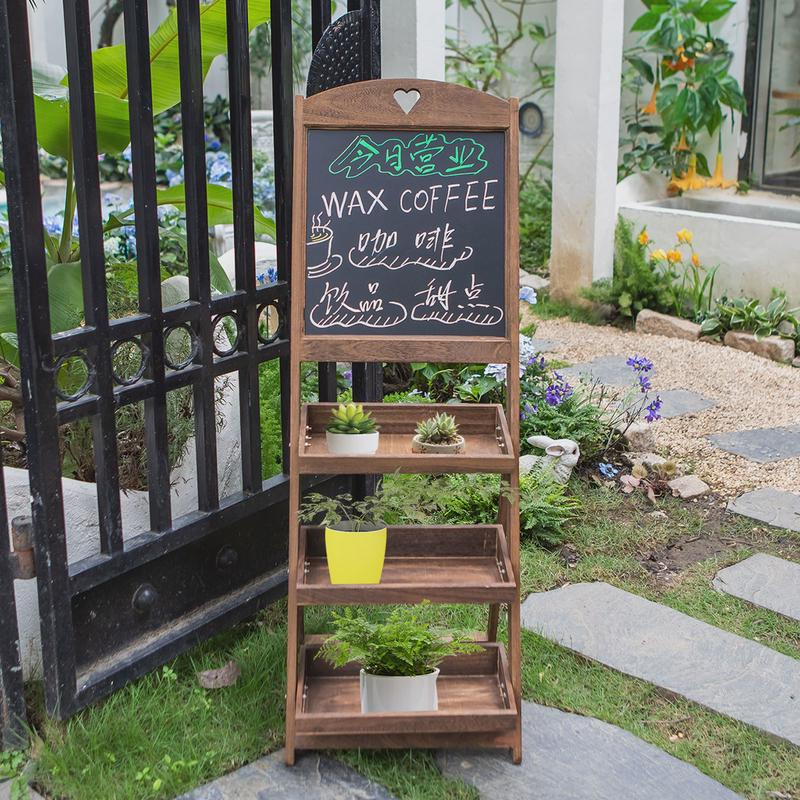 今日营业
WAX COFFEE
咖啡
饮品 甜点